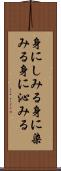 身にしみる身に染
みる身に沁みる